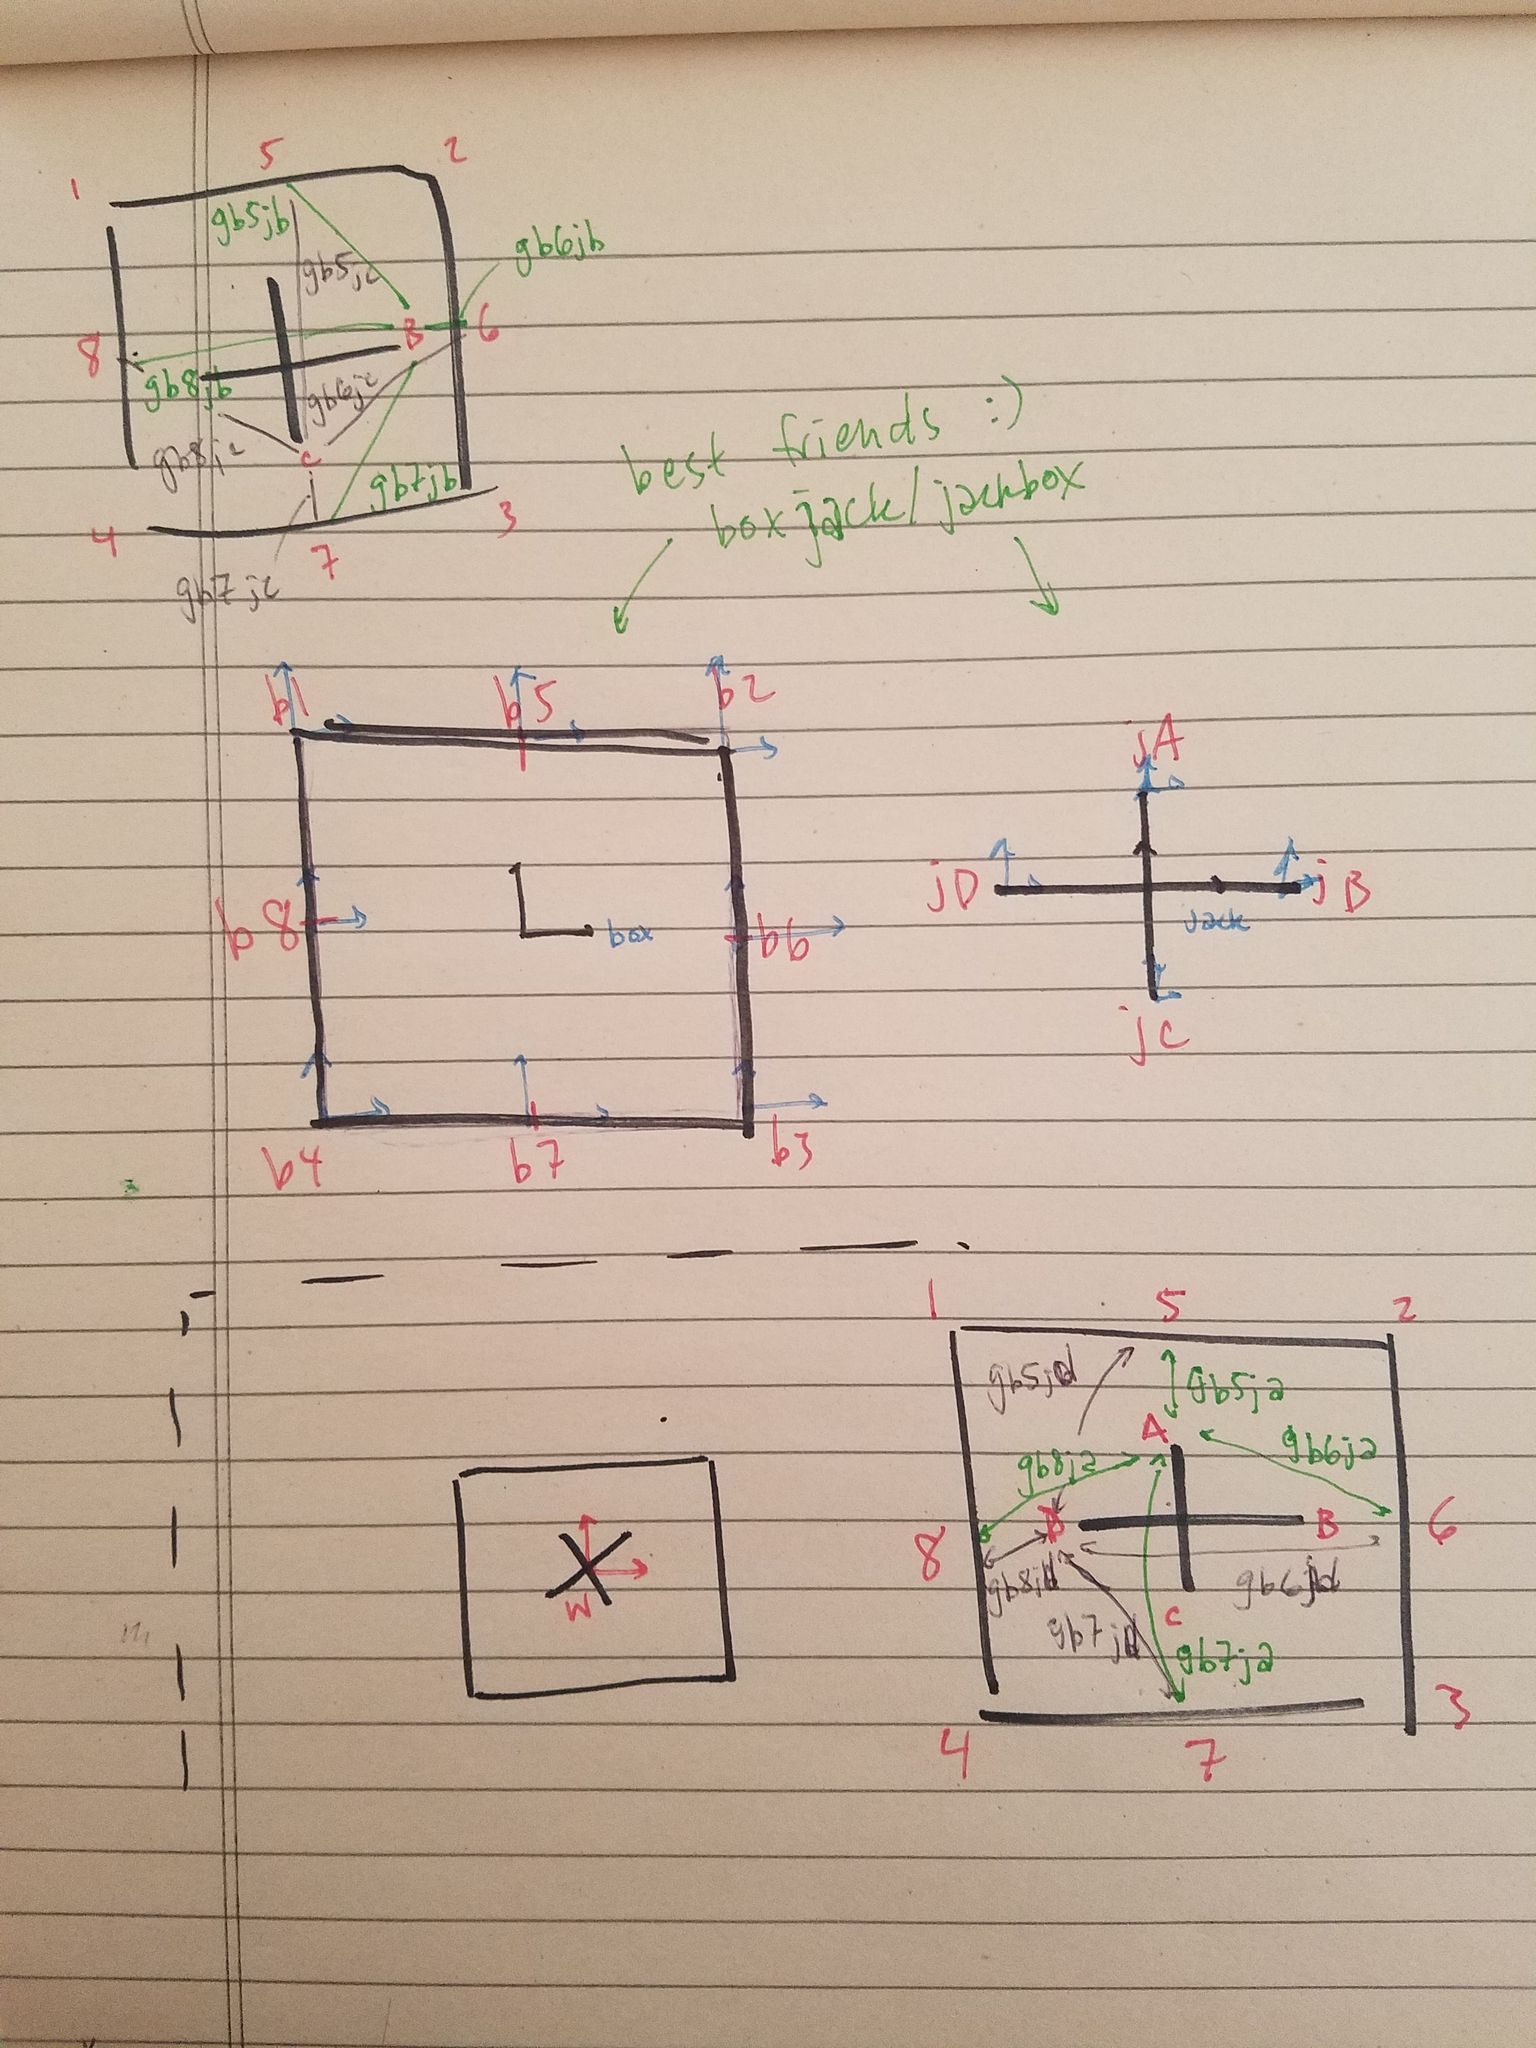 5 2
1
gb5jb
gb5jc
gb6jb
B
6
8
gb8jb
gb6jc
gb8jc
C
gb7jb
4
3
7
gb7jc
best friends :)
boxjack/jackbox
b1 b5 b2
jA
jD
jB
jack
b8
box
b6
jC
b4 b7 b3
1 5 2
gb5jd
gb5ja
A
gb6ja
gb8ja
D
B
6
8
gb8jd
gb6jd
W
C
gb7jd
gb7ja
3
4
7